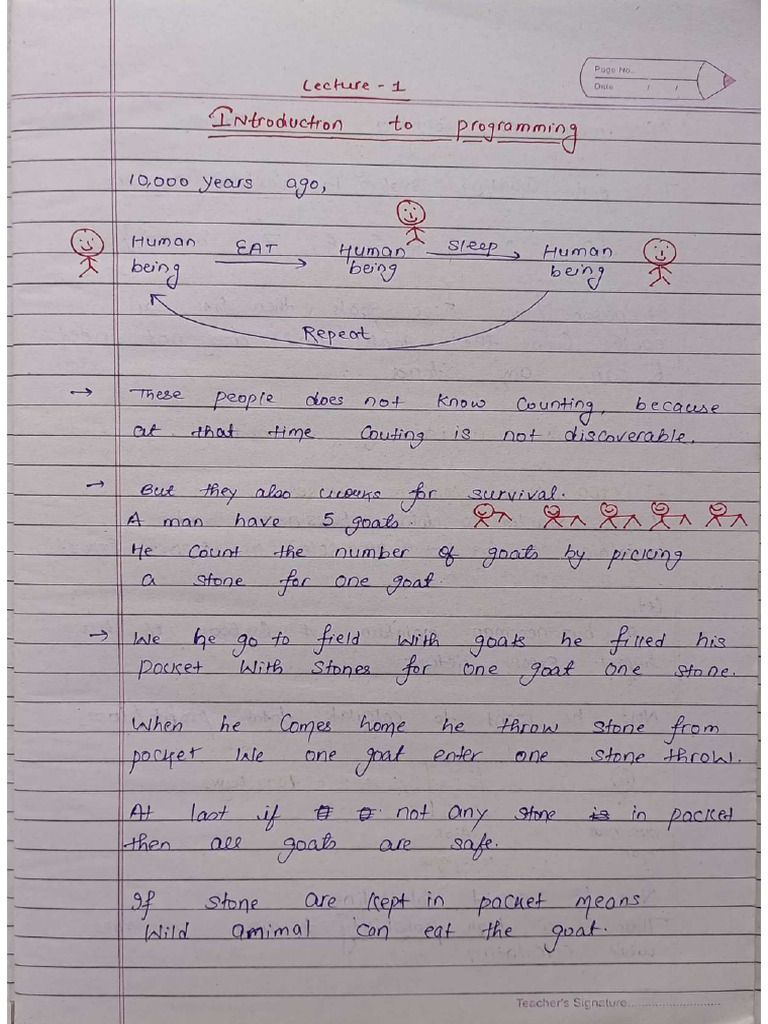 Page No.
Date / /
Lecture - 1
Introduction to programming
10,000 years ago,
Human being EAT Human being Sleep Human being
Repeat
→ These people does not know counting, because
at that time couting is not discoverable.
→ But they also works for survival.
A man have 5 goats.
He count the number of goats by picking
a stone for one goat.
→ We he go to field with goats he filled his
pocket with stones for one goat one stone.
When he comes home he throw stone from
pocket we one goat enter one stone throw.
At last if not any stone in pocket
then all goats are safe.
If stone are kept in pocket means
wild amimal can eat the goat.
Teacher's Signature